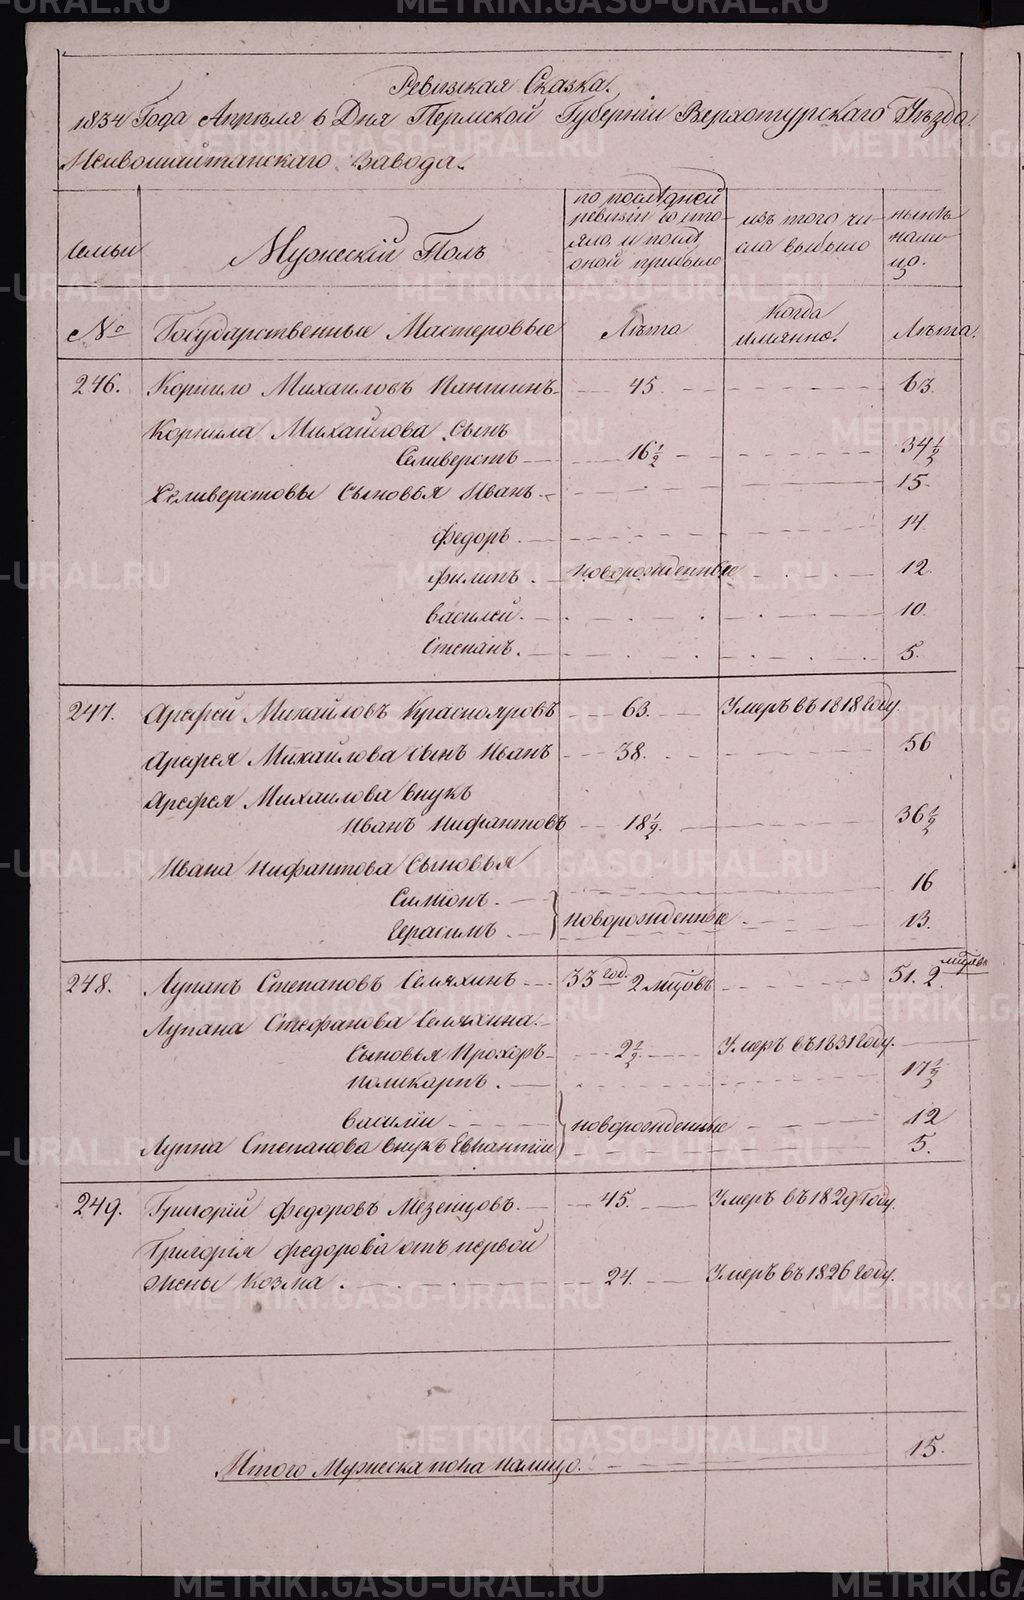 Ревизская Сказка.
1834 Года Апреля 6 Дня Пермской Губернiи Верхотурскаго Уѣзда
Нейвошайтанскаго Завода.
Семьи
Мужескiй Полъ
по последней ревизiи состояло, и после оной прибыло
изъ того числа выбыло
нынѣ налицо.
№
Государственные Мастеровые
Лѣта
Когда имянно.
Лѣта.
246. Корнило Михаиловъ Паншинъ 45. 63.
Корнила Михайлова Сынъ
Селиверстъ 16 1/2 34 1/2
Селиверстовы Сыновья Иванъ 15.
Федоръ. 14
Филипъ. новорожденные 12.
Василей. 10.
Степанъ. 5.
247. Арефей Михайловъ Краснояровъ 63. Умеръ въ 1818 году.
Арефея Михайлова сынъ Иванъ 38. 56
Арефея Михаилова внукъ
Иванъ Нифантовъ 18 1/2. 36 1/2
Ивана Нифантова Сыновья
Симионъ. 16
Герасимъ. новорожденные 13.
248. Лупанъ Степановъ Селяхинъ 33 год. 2 мцовъ 51. 2
Лупана Стефанова Селяхина.
Сыновья Прохоръ 2 1/2 Умеръ въ 1831 году.
Поликарпъ. 17 1/2
Василiи новорожденные 12
Лупна Степанова внукъ 5.
249. Григорiй Федоровъ Мезенцовъ. 45. Умеръ въ 1829 году.
Григорiя Федорова отъ первой
жены Козма. 24. Умеръ въ 1826 году.
Итого Мужеска пола налицо. 15.
METRIKI.GASO-URAL.RU